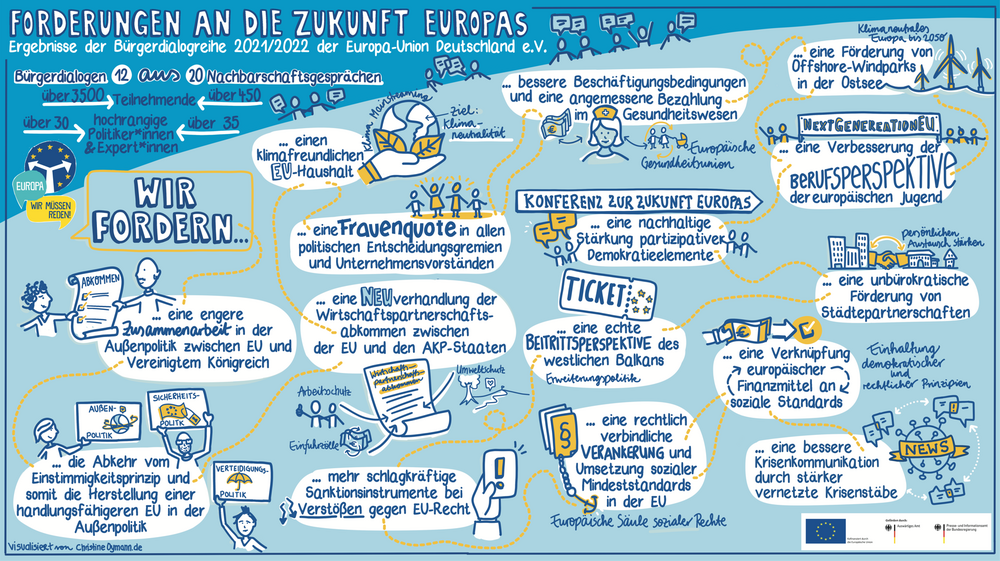 FORDERUNGEN AN DIE ZUKUNFT EUROPAS
Ergebnisse der Bürgerdialogreihe 2021/2022 der Europa-Union Deutschland e.V.
Bürgerdialogen 12 aus 20 Nachbarschaftsgesprächen
über 3500 Teilnehmende über 450
über 30 hochrangige Politiker*innen & Expert*innen über 35
EUROPA
WIR MÜSSEN
REDEN!
WIR
FORDERN...
... einen
klimafreundlichen
EU-Haushalt
Klima Mainstreaming
Ziel:
Klima-
neutralität
... bessere Beschäftigungsbedingungen
und eine angemessene Bezahlung
im Gesundheitswesen
Europäische
Gesundheitsunion
Klimaneutrales
Europa bis 2050
... eine Förderung von
Offshore-Windparks
in der Ostsee
NEXTGENEREATIONEU
... eine Verbesserung der
BERUFSPERSPEKTIVE
der europäischen Jugend
... eine Frauenquote in allen
politischen Entscheidungsgremien
und Unternehmensvorständen
KONFERENZ ZUR ZUKUNFT EUROPAS
... eine nachhaltige
Stärkung partizipativer
Demokratieelemente
persönlichen
Austausch stärken
... eine unbürokratische
Förderung von
Städtepartnerschaften
ABKOMMEN
... eine engere
Zusammenarbeit in der
Außenpolitik zwischen EU und
Vereinigtem Königreich
... eine NEUverhandlung der
Wirtschaftspartnerschafts-
abkommen zwischen
der EU und den AKP-Staaten
Arbeitsschutz
Einfuhrzölle
Wirtschafts-
partnerschafts-
abkommen
Umweltschutz
TICKET
... eine echte
BEITRITTSPERSPEKTIVE des
westlichen Balkans
Erweiterungspolitik
€
... eine Verknüpfung
europäischer
Finanzmittel an
soziale Standards
Einhaltung
demokratischer
und
rechtlicher Prinzipien
AUẞEN-
POLITIK
SICHERHEITS-
POLITIK
VERTEIDIGUNGS-
POLITIK
... die Abkehr vom
Einstimmigkeitsprinzip und
somit die Herstellung einer
handlungsfähigeren EU in der
Außenpolitik
... mehr schlagkräftige
Sanktionsinstrumente bei
Verstößen gegen EU-Recht
!
§
... eine rechtlich
verbindliche
VERANKERUNG und
Umsetzung sozialer
Mindeststandards
in der EU
Europäische Säule sozialer Rechte
... eine bessere
Krisenkommunikation
durch stärker
vernetzte Krisenstäbe
NEWS
Visualisiert von Christine Oymann.de
Auswärtiges Amt
Presse- und Informationsamt
der Bundesregierung